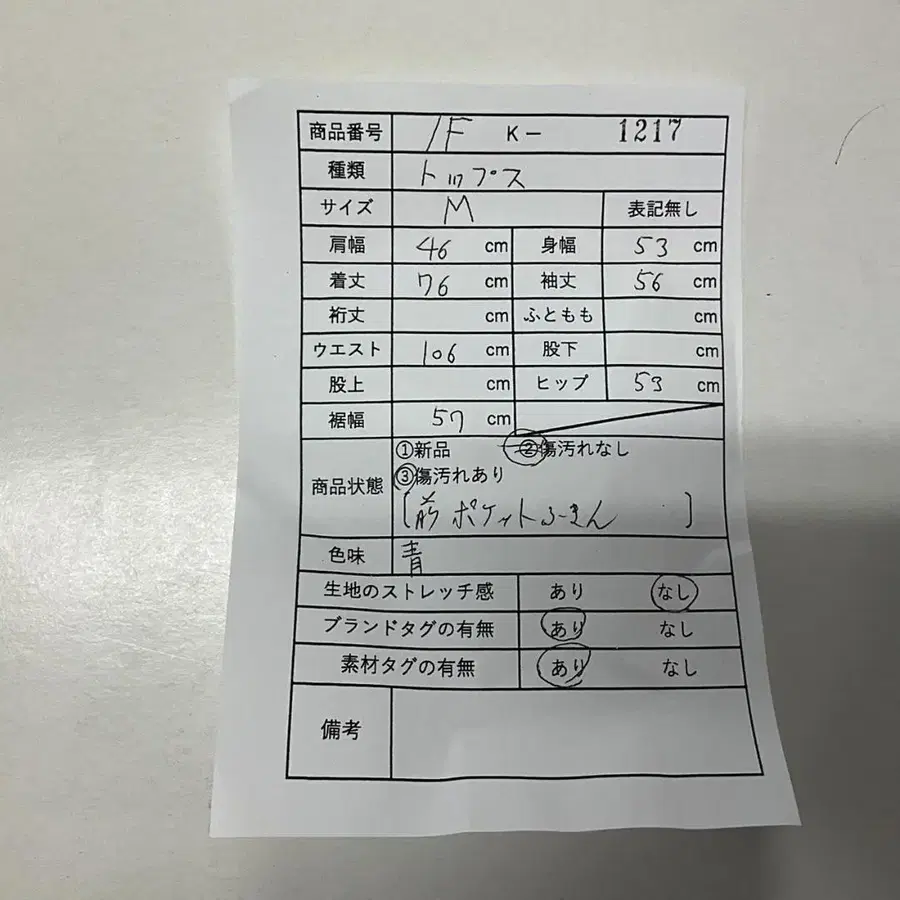 商品番号 1F K- 1217
種類 トップス
サイズ M 表記無し
肩幅 46 cm 身幅 53 cm
着丈 76 cm 袖丈 56 cm
裄丈 cm ふともも cm
ウエスト 106 cm 股下 cm
股上 cm ヒップ 53 cm
裾幅 57 cm
商品状態 ①新品 ②傷汚れなし
③傷汚れあり
[前 ポケット ]
色味 青
生地のストレッチ感 あり なし
ブランドタグの有無 あり なし
素材タグの有無 あり なし
備考